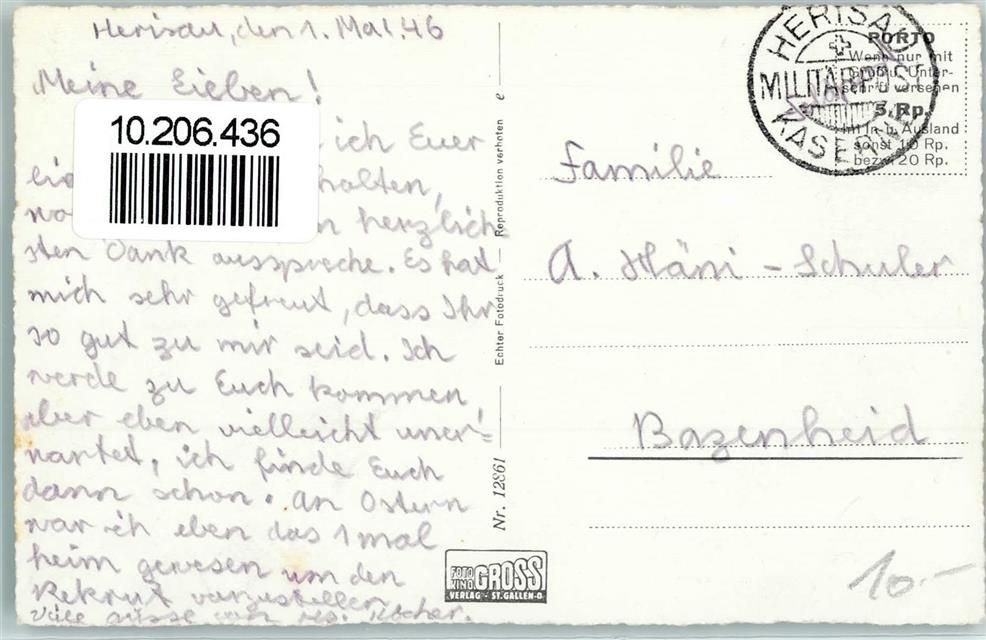 Herisau, den 1. Mai. 46
Meine Lieben!
10.206.436
ich Euer
halten,
herzlich-
sten Dank ausspreche. Es hat
mich sehr gefreut, dass Ihr
so gut zu mir seid. Ich
werde zu Euch kommen
aber eben vielleicht uner-
wartet, ich finde Euch
dann schon. An Ostern
war ich eben das 1 mal
heim gewesen um den
Rekrut vorzustellen
Viele Grüsse von
Echter Fotodruck — Reproduktion verboten
Nr. 12861
FOTO KINO GROSS
VERLAG - ST. GALLEN-O
HERISAU
MILITÄRPOST
KASERNE
PORTO
Wenn nur mit
Gruss u. Unter-
schrift versehen
5 Rp.
im In- u. Ausland
sonst 10 Rp.
bezw. 20 Rp.
Familie
A. Häni - Schuler
Bazenheid
10.-